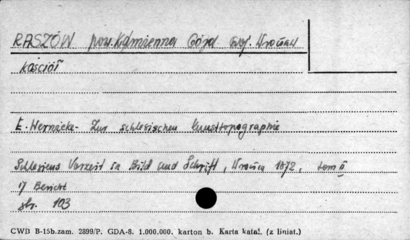 RASZÓW pow. Kamienna Góra woj. Wrocław
Kościół
E. Wernicke - Zur schlesischen Kunsttopographie
Schlesiens Vorzeit in Bild und Schrift, 1872, tom II
17 Bericht
str. 103
CWD B-15b.zam. 2899/P. GDA-8. 1.000.000. karton b. Karta katal. (z liniat.)